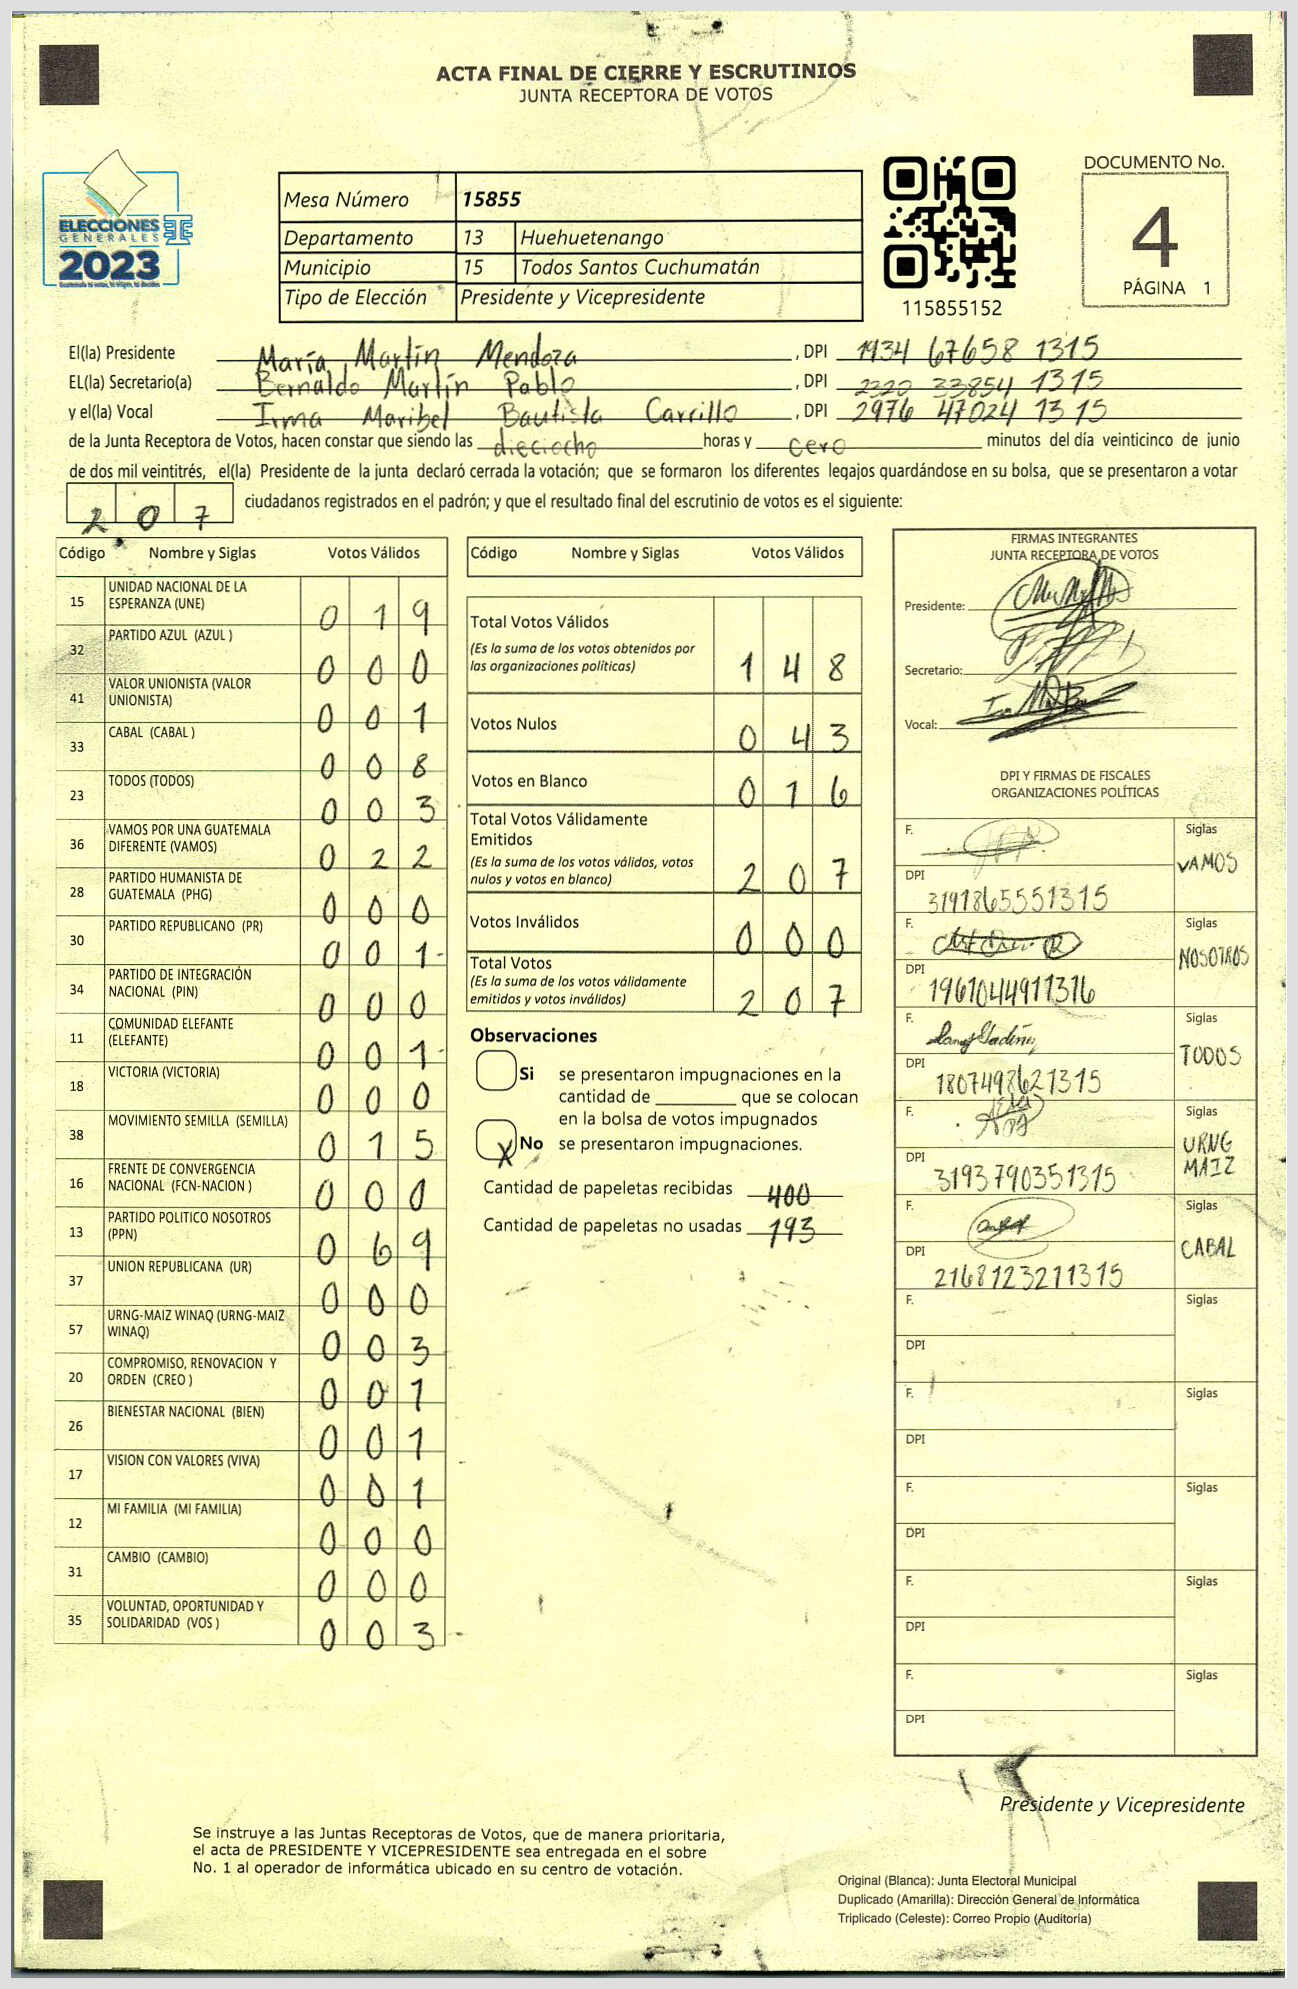 ACTA FINAL DE CIERRE Y ESCRUTINIOS
JUNTA RECEPTORA DE VOTOS
ELECCIONES
GENERALES
2023
Mesa Número 15855
Departamento 13 Huehuetenango
Municipio 15 Todos Santos Cuchumatán
Tipo de Elección Presidente y Vicepresidente
115855152
DOCUMENTO No.
4
PÁGINA 1
El(la) Presidente María Martín Mendoza , DPI 1934 67658 1315
EL(la) Secretario(a) Bernaldo Martín Pablo , DPI 2320 33854 1315
y el(la) Vocal Irma Maribel Bautista Carrillo , DPI 2976 47024 1315
de la Junta Receptora de Votos, hacen constar que siendo las dieciocho horas y cero minutos del día veinticinco de junio
de dos mil veintitrés, el(la) Presidente de la junta declaró cerrada la votación; que se formaron los diferentes legajos guardándose en su bolsa, que se presentaron a votar
207 ciudadanos registrados en el padrón; y que el resultado final del escrutinio de votos es el siguiente:
Código Nombre y Siglas Votos Válidos
15 UNIDAD NACIONAL DE LA ESPERANZA (UNE) 019
32 PARTIDO AZUL (AZUL ) 000
41 VALOR UNIONISTA (VALOR UNIONISTA) 001
33 CABAL (CABAL ) 008
23 TODOS (TODOS) 003
36 VAMOS POR UNA GUATEMALA DIFERENTE (VAMOS) 022
28 PARTIDO HUMANISTA DE GUATEMALA (PHG) 000
30 PARTIDO REPUBLICANO (PR) 001
34 PARTIDO DE INTEGRACIÓN NACIONAL (PIN) 000
11 COMUNIDAD ELEFANTE (ELEFANTE) 001
18 VICTORIA (VICTORIA) 000
38 MOVIMIENTO SEMILLA (SEMILLA) 015
16 FRENTE DE CONVERGENCIA NACIONAL (FCN-NACION ) 000
13 PARTIDO POLITICO NOSOTROS (PPN) 069
37 UNION REPUBLICANA (UR) 000
57 URNG-MAIZ WINAQ (URNG-MAIZ WINAQ) 003
20 COMPROMISO, RENOVACION Y ORDEN (CREO ) 001
26 BIENESTAR NACIONAL (BIEN) 001
17 VISION CON VALORES (VIVA) 001
12 MI FAMILIA (MI FAMILIA) 000
31 CAMBIO (CAMBIO) 000
35 VOLUNTAD, OPORTUNIDAD Y SOLIDARIDAD (VOS ) 003
Código Nombre y Siglas Votos Válidos
Total Votos Válidos
(Es la suma de los votos obtenidos por
las organizaciones políticas) 148
Votos Nulos 043
Votos en Blanco 016
Total Votos Válidamente
Emitidos
(Es la suma de los votos válidos, votos
nulos y votos en blanco) 207
Votos Inválidos 000
Total Votos
(Es la suma de los votos válidamente
emitidos y votos inválidos) 207
Observaciones
Si se presentaron impugnaciones en la
cantidad de ________ que se colocan
en la bolsa de votos impugnados
X No se presentaron impugnaciones.
Cantidad de papeletas recibidas 400
Cantidad de papeletas no usadas 193
FIRMAS INTEGRANTES
JUNTA RECEPTORA DE VOTOS
Presidente:
Secretario:
Vocal:
DPI Y FIRMAS DE FISCALES
ORGANIZACIONES POLÍTICAS
F. Siglas
VAMOS
DPI 3191865551315
F. Siglas
NOSOTROS
DPI 1961044911316
F. Siglas
TODOS
DPI 1807498621315
F. Siglas
URNG
MAIZ
DPI 3193790351315
F. Siglas
CABAL
DPI 2168123211315
F. Siglas
DPI
F. Siglas
DPI
F. Siglas
DPI
F. Siglas
DPI
F. Siglas
DPI
Presidente y Vicepresidente
Se instruye a las Juntas Receptoras de Votos, que de manera prioritaria,
el acta de PRESIDENTE Y VICEPRESIDENTE sea entregada en el sobre
No. 1 al operador de informática ubicado en su centro de votación.
Original (Blanca): Junta Electoral Municipal
Duplicado (Amarilla): Dirección General de Informática
Triplicado (Celeste): Correo Propio (Auditoría)